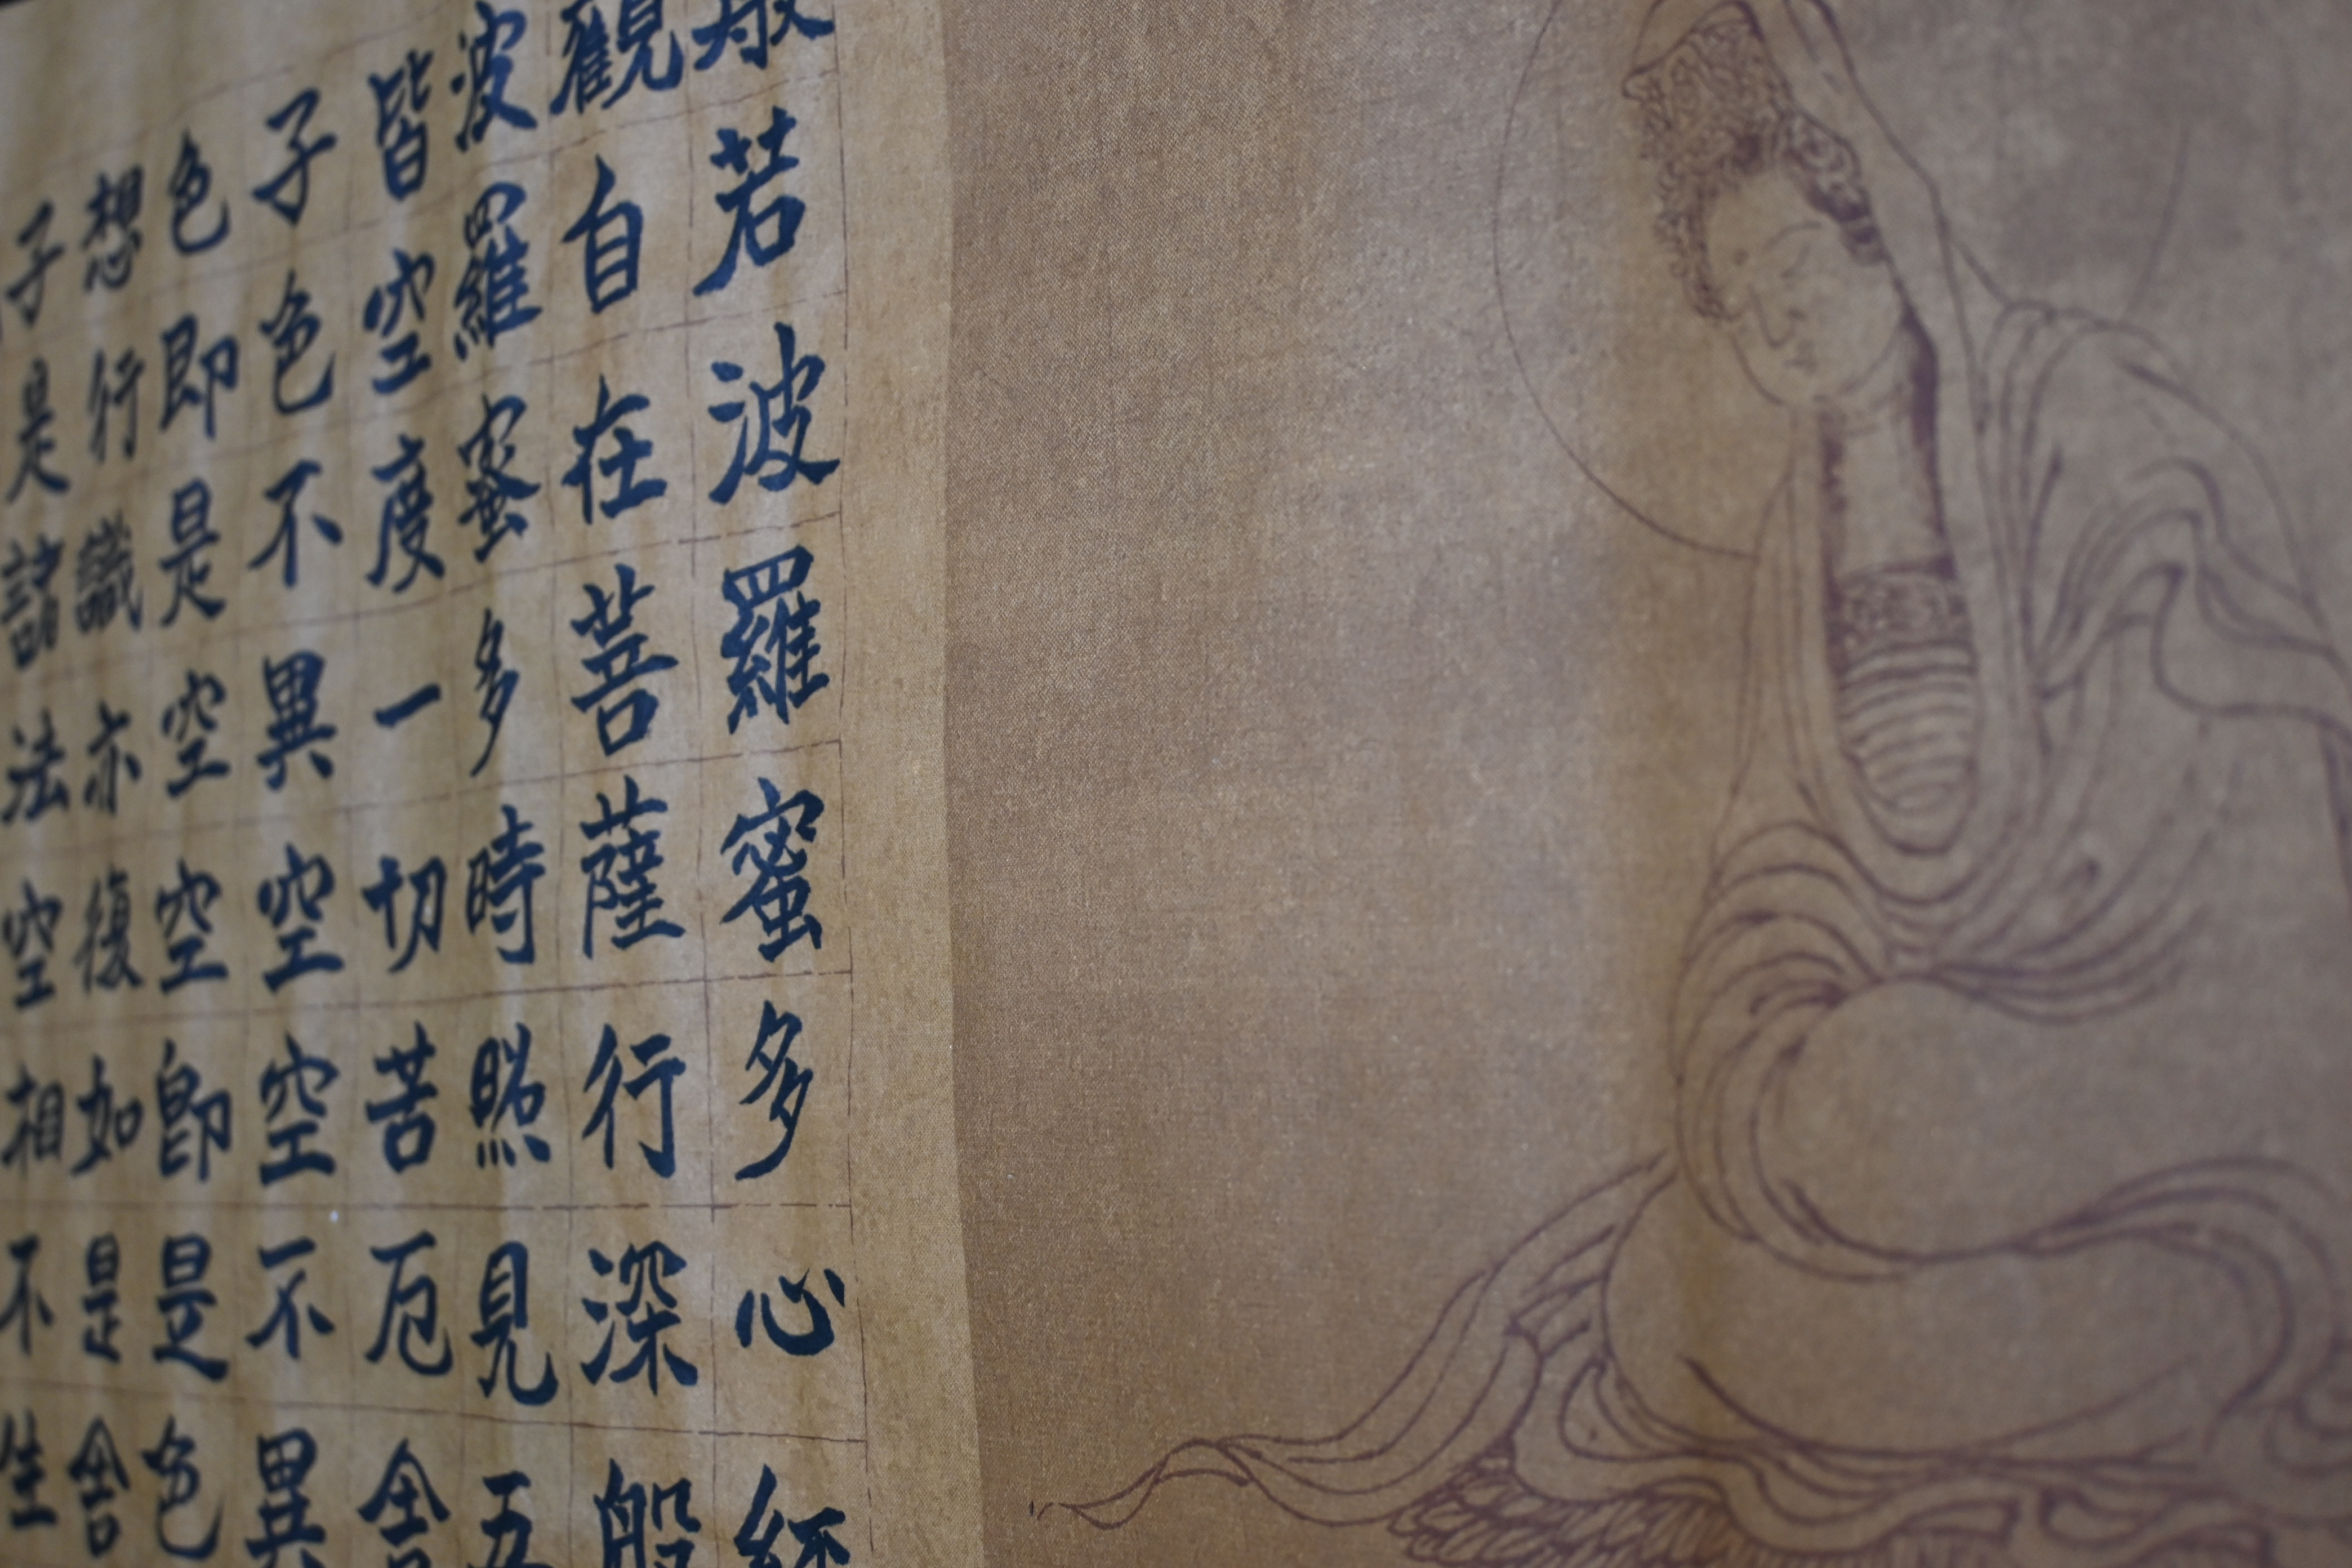 般若波羅蜜多心經
觀自在菩薩行深般
波羅蜜多時照見五
皆空度一切苦厄舍
子色不異空空不異
色即是空空即是色
想行識亦復如是舍
子是諸法空相不生